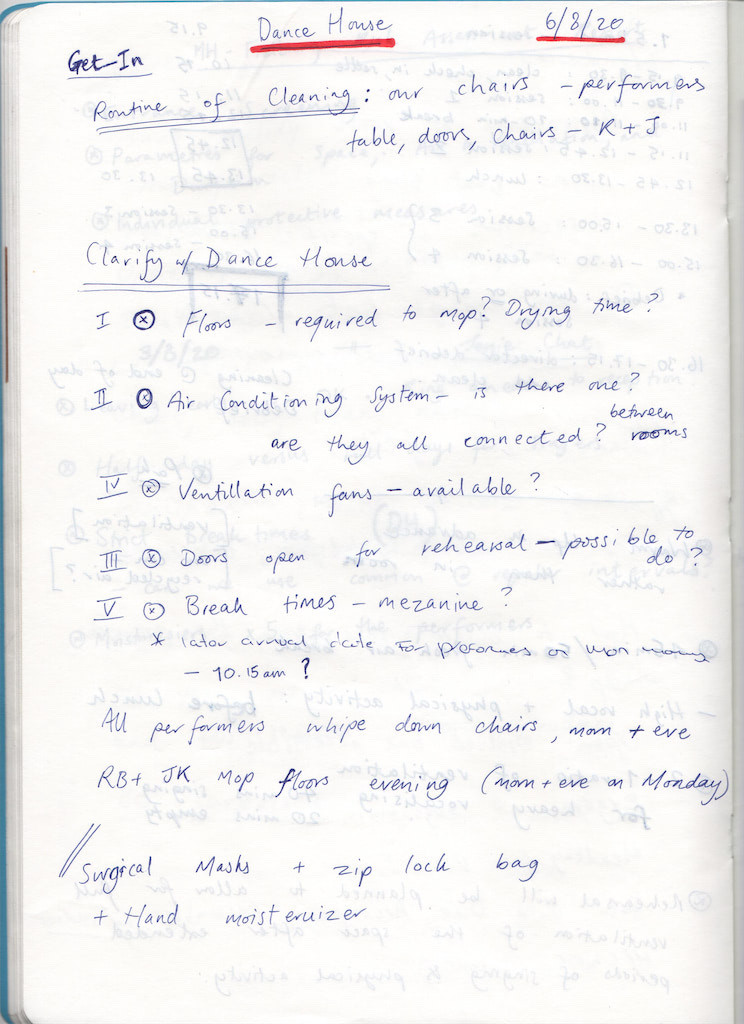 Dance House 6/8/20
Get-In
Routine of Cleaning: our chairs - performers
table, doors, chairs - K + J
Clarify w/ Dance House
I ⊗ Floors - required to mop? Drying time?
II ⊗ Air Conditioning System - is there one?
are they all connected? between rooms
IV ⊗ Ventillation fans - available?
III ⊗ Doors open for rehearsal - possible to do?
V ⊗ Break times - mezanine?
* later arrival date for preformers on mon
- 10.15am?
All performers whipe down chairs, morn + eve
RB + JK Mop floors evening (morn + eve on Monday)
// Surgical Masks + zip lock bag
+ Hand moisteruizer